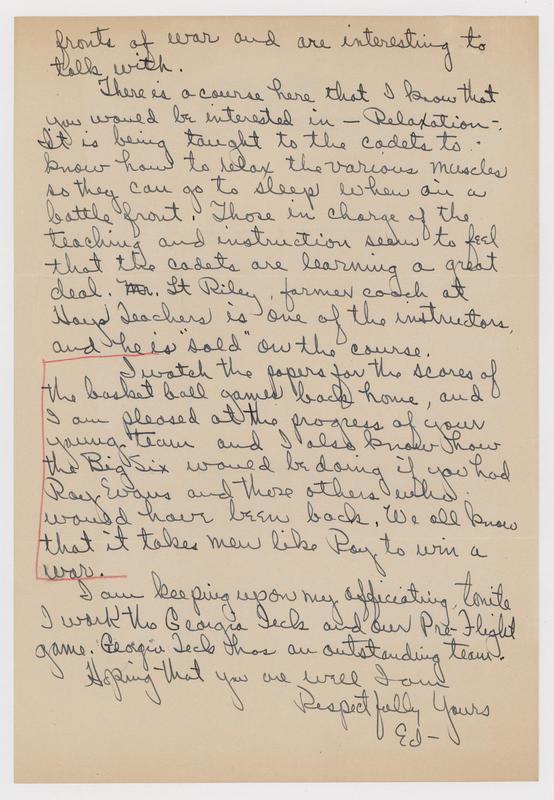 fronts of war and are interesting to
talk with.
There is a course here that I know that
you would be interested in — Relaxation -.
It is being taught to the cadets to
know how to relax the various muscles
so they can go to sleep when on a
battle front. Those in charge of the
teaching and instruction seem to feel
that the cadets are learning a great
deal. Mr. Lt Riley, former coach at
Hays Teachers is one of the instructors,
and he is "sold" on the course.
I watch the papers for the scores of
the basket ball games back home, and
I am pleased at the progress of your
young team and I also know how
the Big Six would be doing if you had
Ray Evans and those others who
would have been back. We all know
that it takes men like Ray to win a
war.
I am keeping up on my officiating, tonite
I work the Georgia Tech and our Pre-Flight
game. Georgia Tech has an outstanding team.
Hoping that you are well I am
Respectfully Yours
Ed -